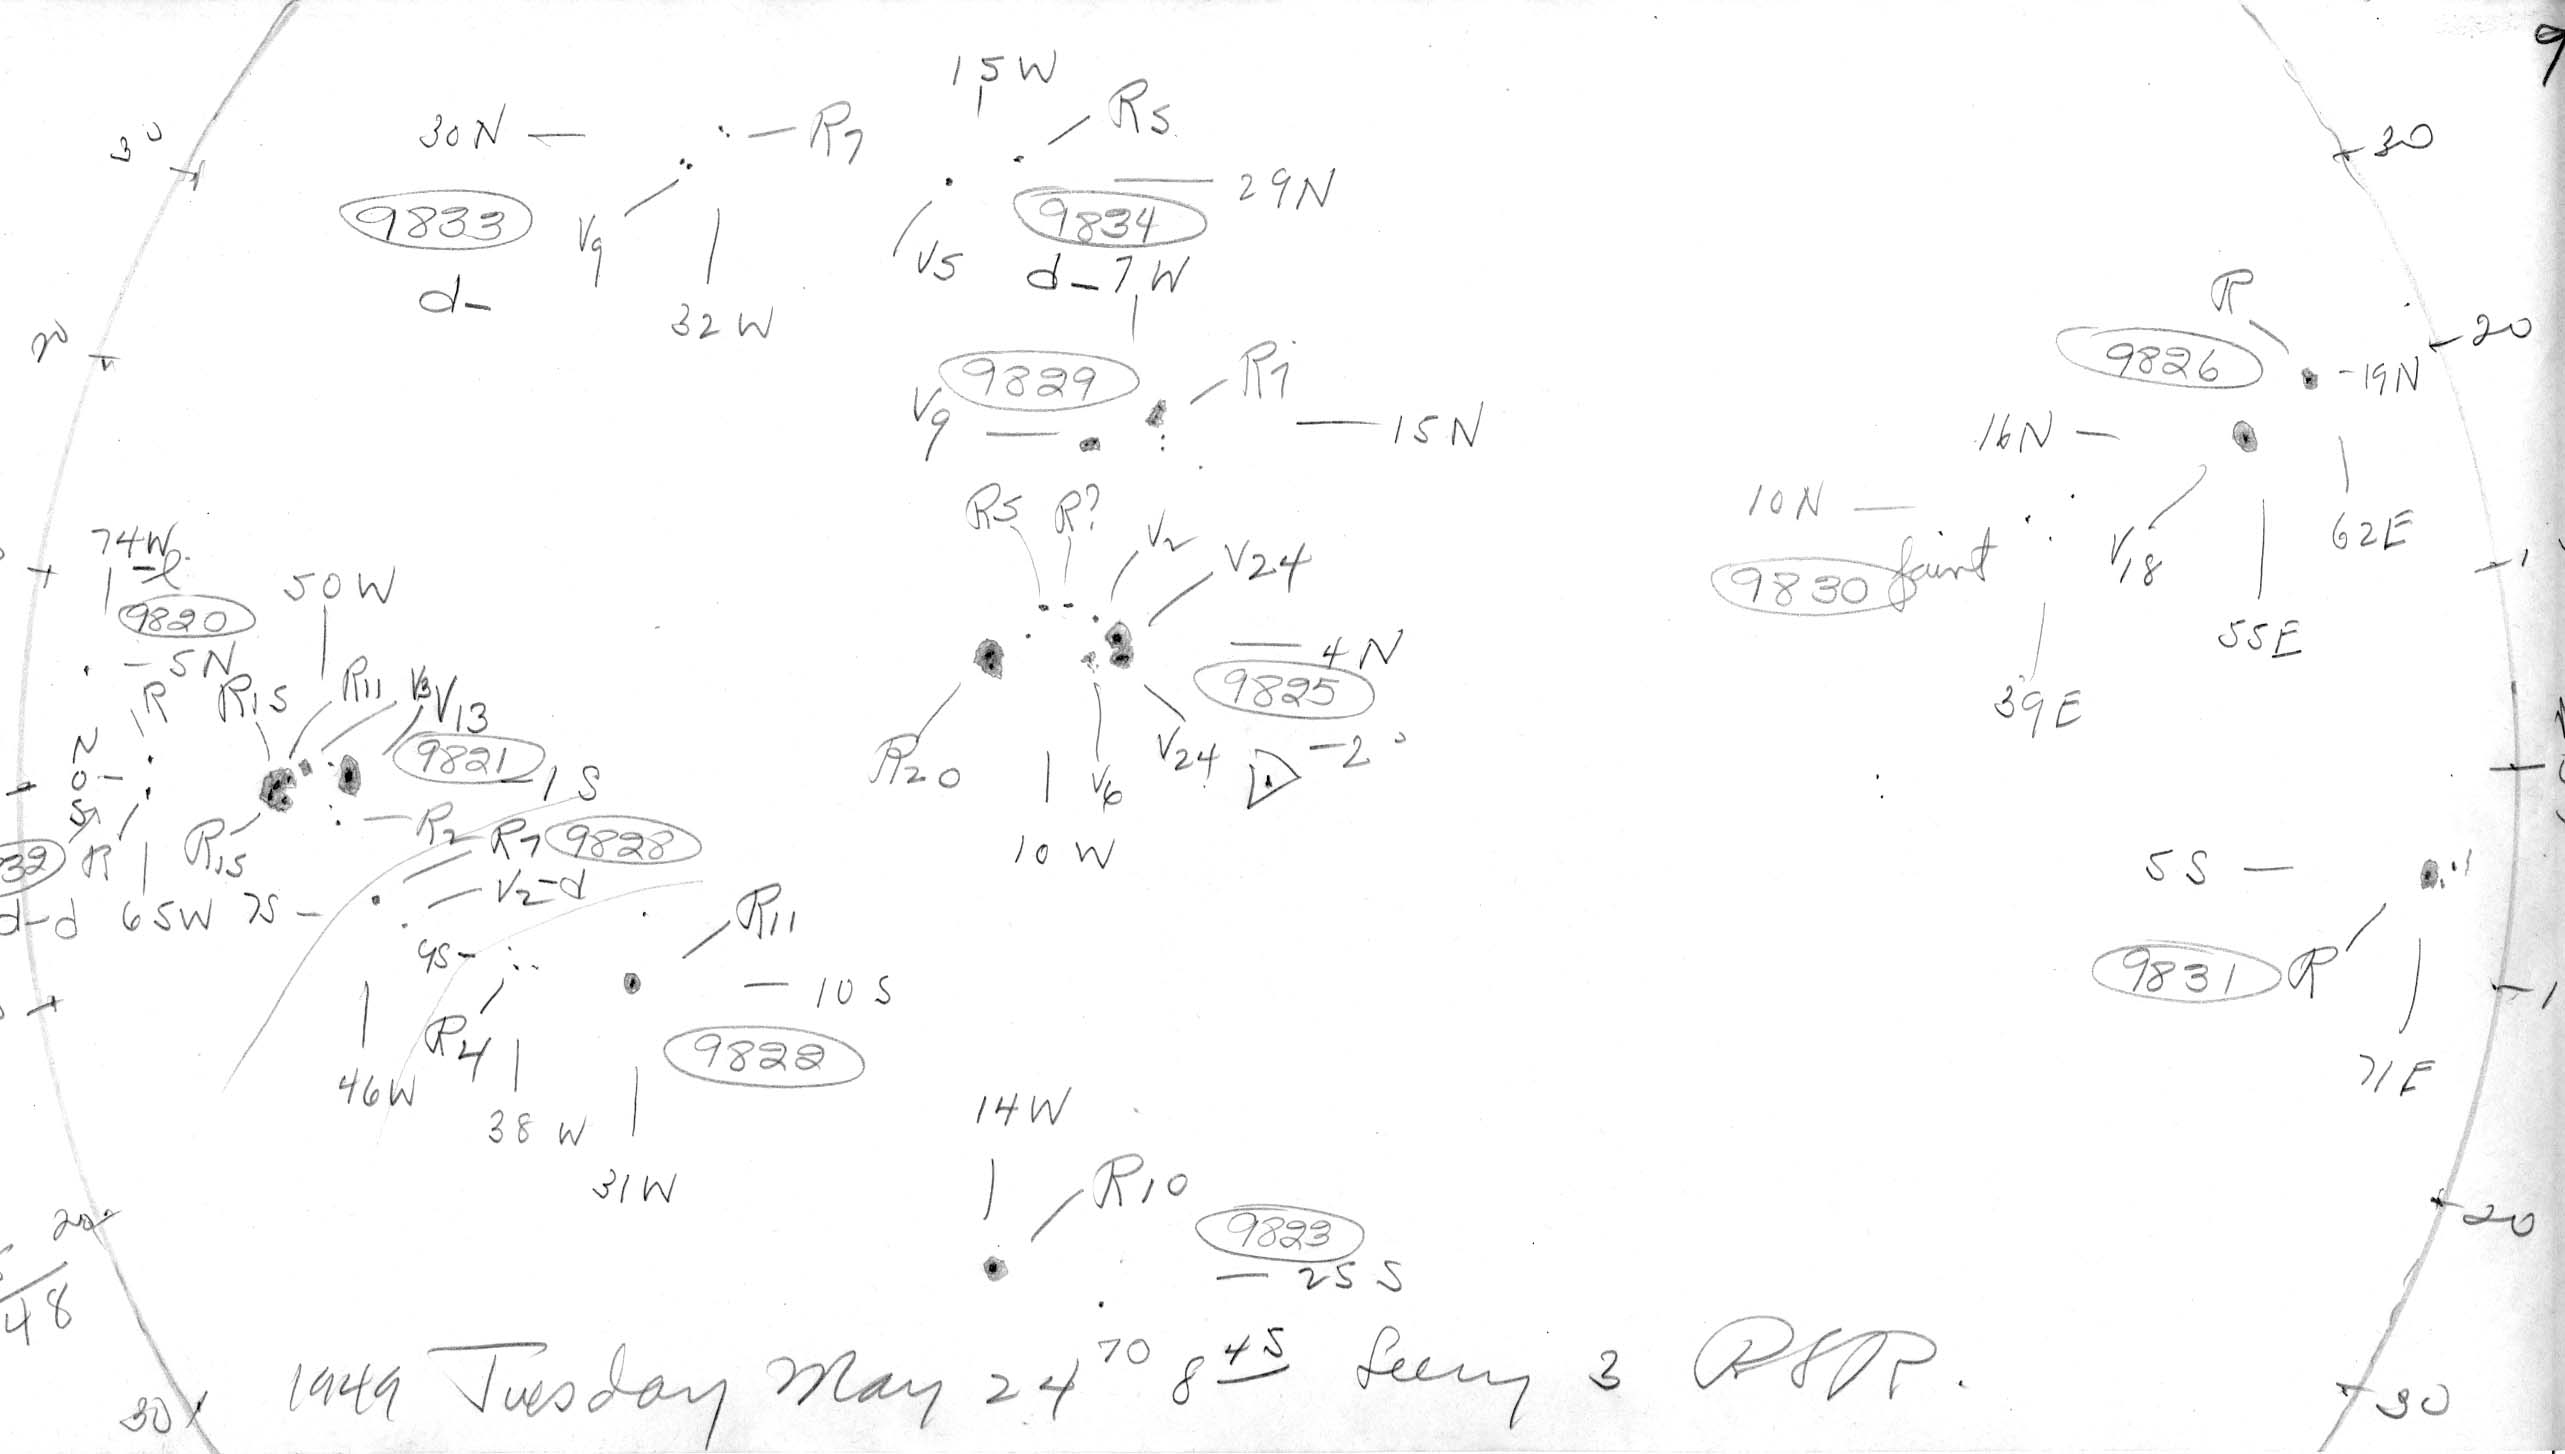 9
15W
R5
30N
R7
30
30
29N
9833
9834
V9
V5
d-
d-
7W
32W
R
20
20
9826
9829
R7
19N
V9
15N
16N
R5
R?
10N
V2
V24
62E
74W
-l
50W
faint
V18
9830
9820
55E
5N
4N
R
R15
R11
V3
V13
9825
39E
N
9821
R20
V24
-2°
0
1S
V6
S
R2
R7
9828
10W
32
R
R15
5S
V2-d
d-d
65W
7S
R11
9S
10S
9831
R
R4
9822
46W
71E
38W
14W
31W
R10
20
9823
20
25S
48
1949 Tuesday May 24 70 8 45 Seeing 3 RSR.
30
30